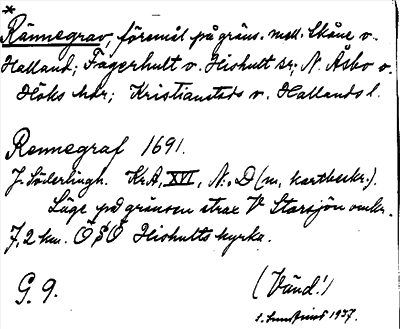 *
Rännegrav, föremål på gräns. mell. Skåne o.
Halland; Fagerhult o. Hishult sr; N. Åsbo o.
Höks hdr; Kristianstads o. Hallands l.
Rennegraf 1691.
J. Söderlingh. KrA, XVI, N:, D (m, kartbeskr.).
Läge på gränsen strax V Storsjön omkr.
7,2 km. Ö S Ö Hishults kyrka.
G. 9.
(Vänd!)
1937.